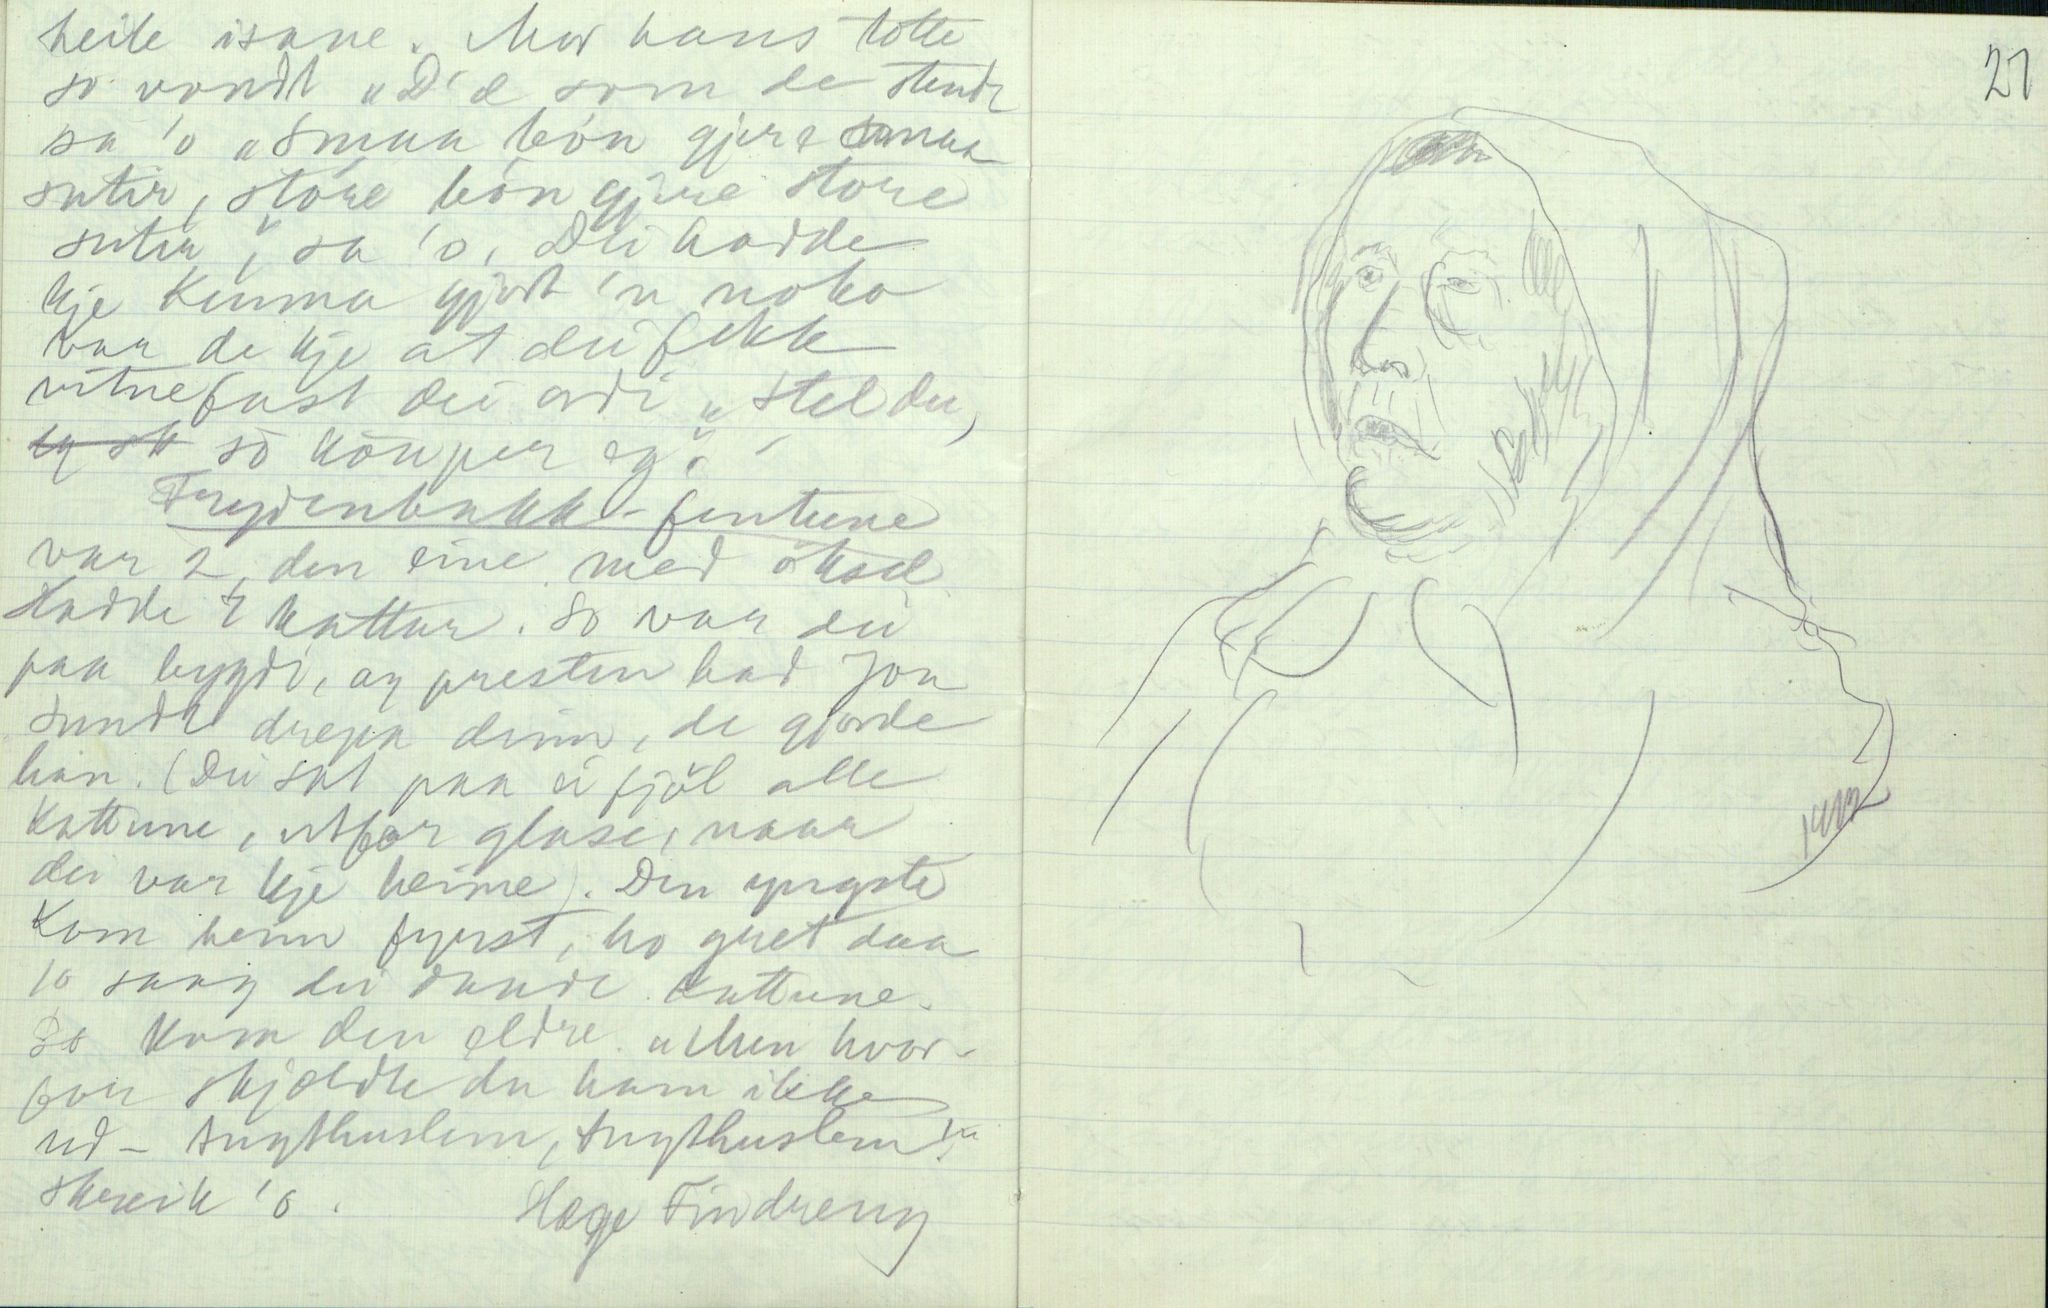 heile isane. Mor hans totte
so vondt „D'æ som de stend
sa 'o „Smaa bôn gjere smaa
sutir, store bôn gjere store
sutir", sa 'o. Dei hadde
kje kunna gjort 'n noko
var de kje at dei fekk
vitnefast dei ordi „Stel du,
so kôuper eg".
Frydenbakk-fentune
var 2, den eine med
Hadde kattur. So var dei
paa bygdi, og presten bad Jon
Sundt drepa deim, de gjorde
han. (Dei sat paa ei fjøl alle
kattune, utfor glase, naar
dei var kje heime). Den yngste
kom heim fyrst, ho gret daa
'o saag dei daude kattune.
So kom den eldre. „Men hvor-
for skjældte du ham ikke
ud – tugthuslem, tugthuslem!"
skreik 'o.
Hæge Findreng
27